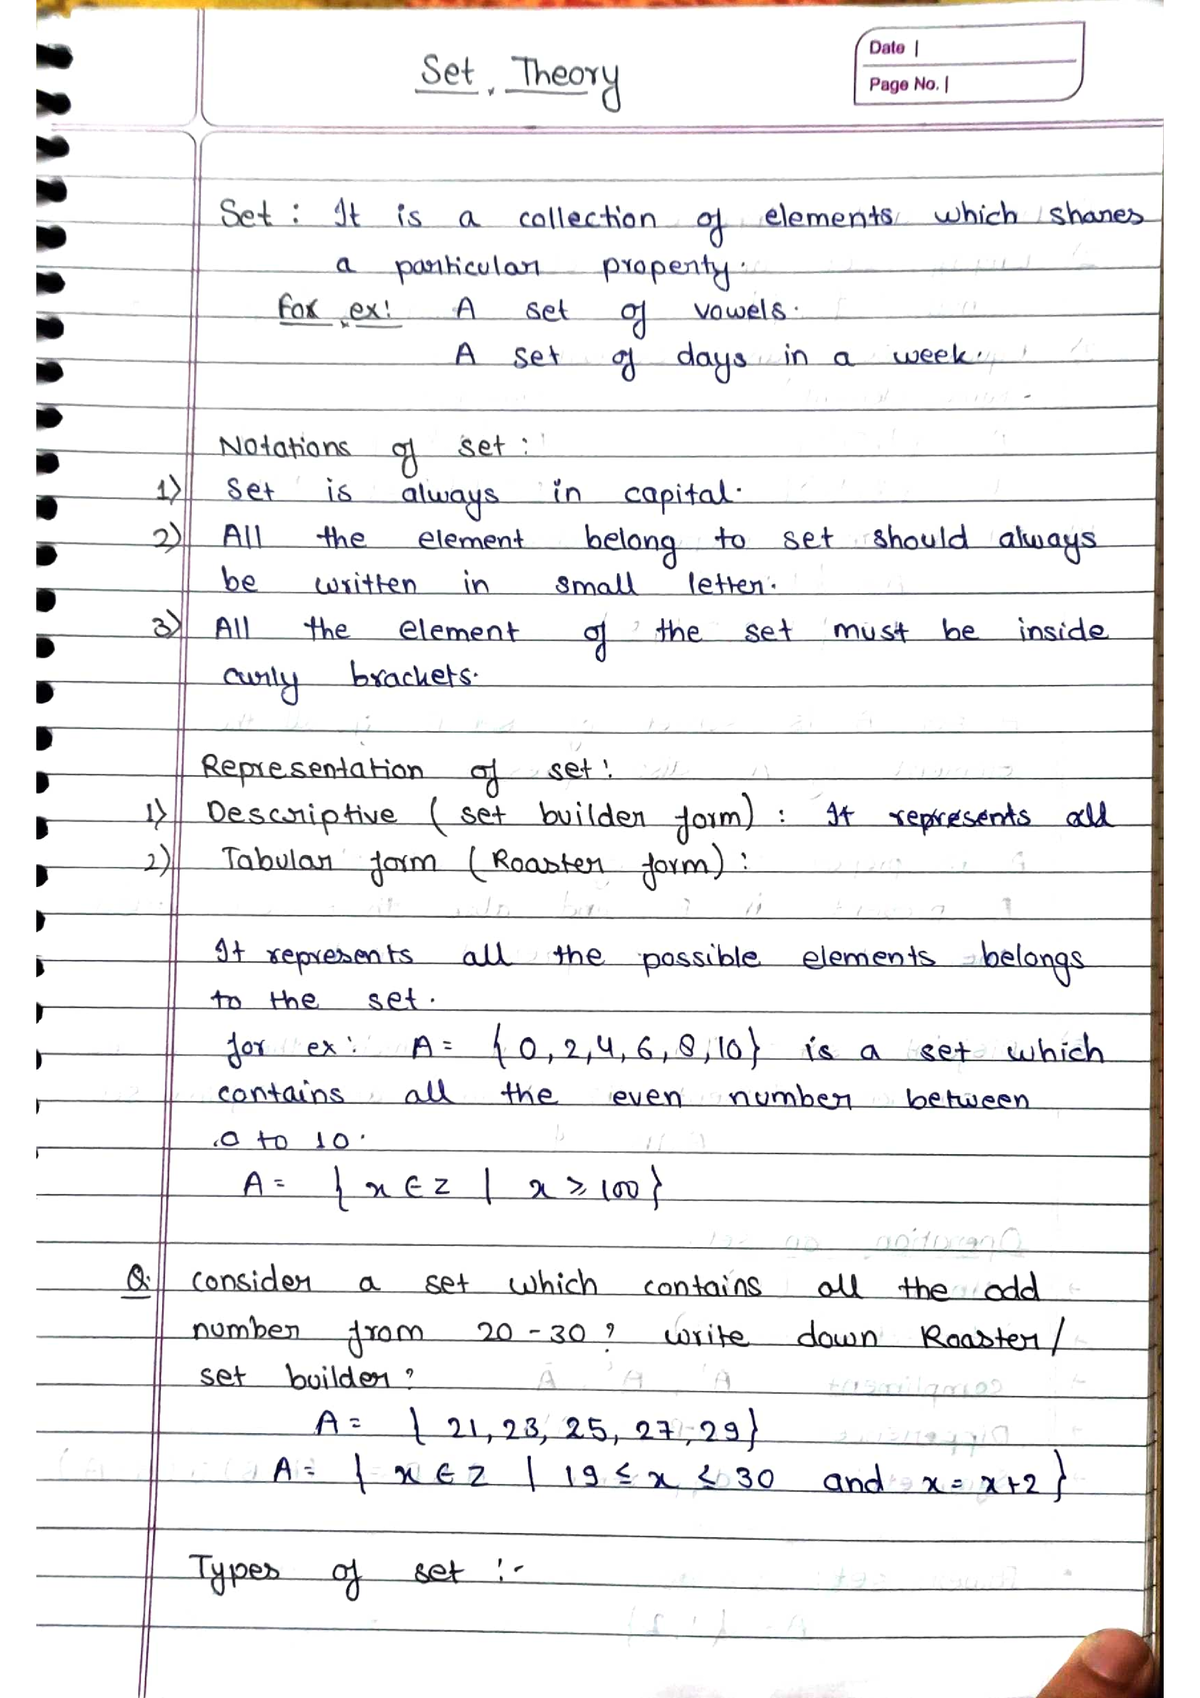 Set Theory
Date |
Page No. |
Set : It is a collection of elements which shares
a particular property.
For ex: A set of vowels.
A set of days in a week.
Notations of set :
1) Set is always in capital.
2) All the element belong to set should always
be written in small letter.
3) All the element of the set must be inside
curly brackets.
Representation of set :
1) Descriptive ( set builder form) : It represents all
2) Tabular form ( Roaster form) :
It represents all the possible elements belongs
to the set.
for ex : A = { 0, 2, 4, 6, 8, 10} is a set which
contains all the even number between
0 to 10.
A = { x ∈ z | x ⩾ 100 }
Q. consider a set which contains all the odd
number from 20 - 30 ? write down Roaster /
set builder ?
A = { 21, 23, 25, 27, 29}
A = { x ∈ z | 19 ≤ x ≤ 30 and x = x+2 }
Types of set :-